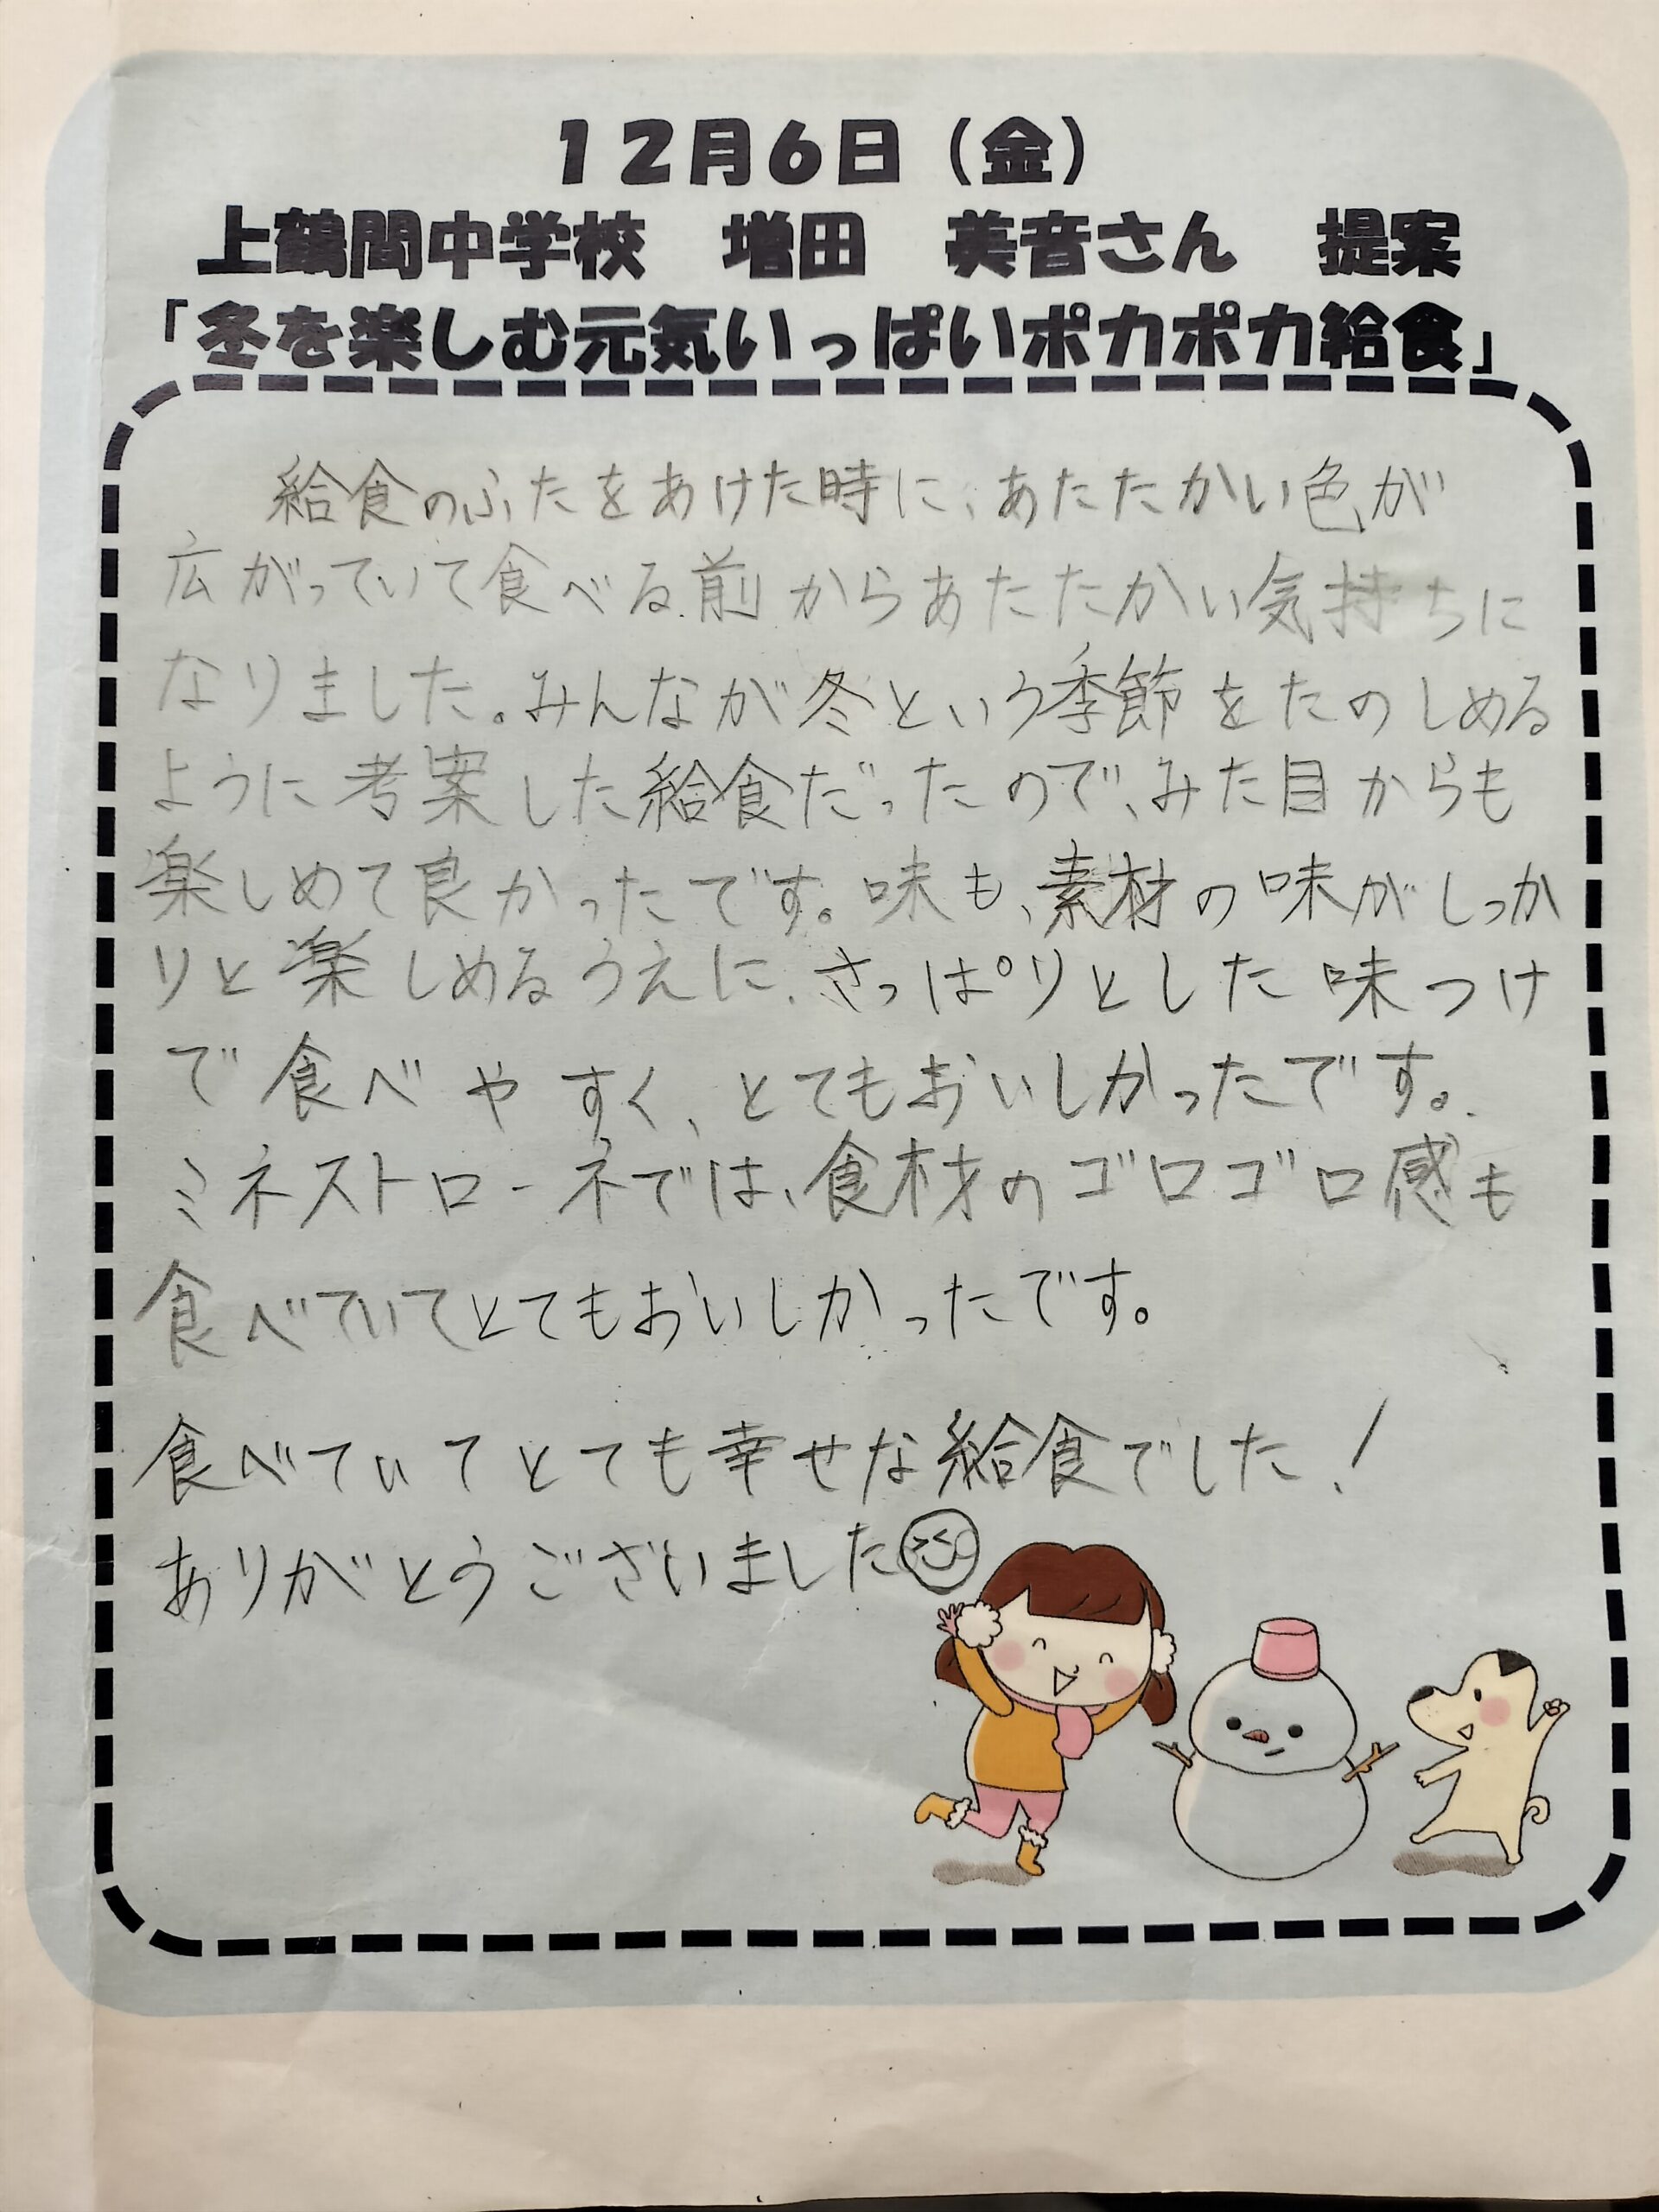 12月6日(金)
上鶴間中学校 増田 美音さん 提案
「冬を楽しむ元気いっぱいポカポカ給食」
給食のふたをあけた時に、あたたかい色が
広がっていて食べる前からあたたかい気持ちに
なりました。みんなが冬という季節をたのしめる
ように考案した給食だったので、みた目からも
楽しめて良かったです。味も、素材の味がしっか
りと楽しめるうえに、さっぱりとした味つけ
で食べやすく、とてもおいしかったです。
ミネストローネでは、食材のゴロゴロ感も
食べていてとてもおいしかったです。
食べていてとても幸せな給食でした!
ありがとうございました